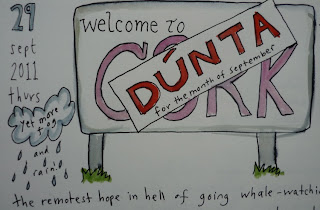 29
sept
2011
thurs
yet more
fog
and
rain!
welcome to
CORK
DÚNTA
for the month of september
the remotest hope in hell of going whale-watchi